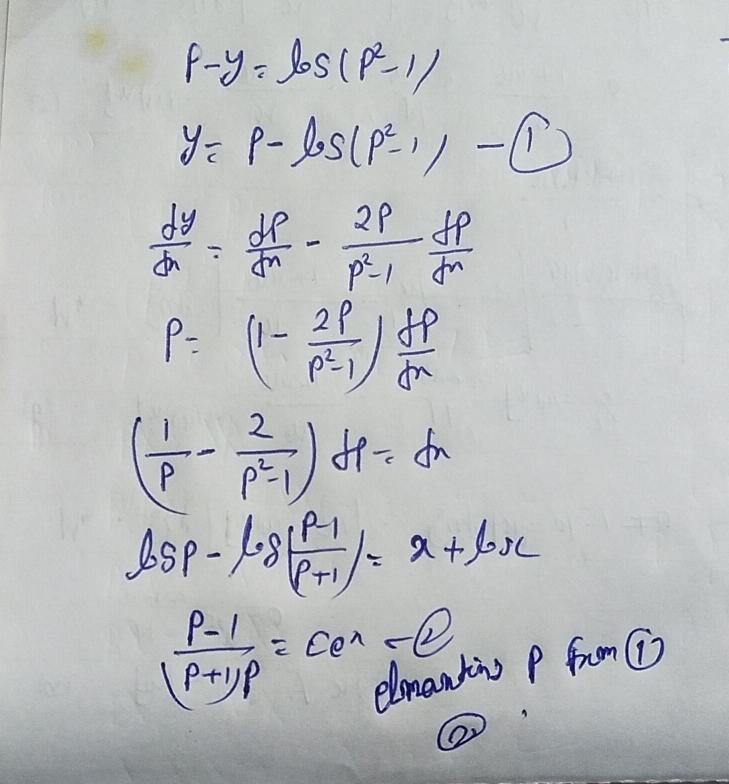 p-y = log(p²-1)
y = p - log(p²-1) - ①
dy/dx = dp/dx - 2p/(p²-1) dp/dx
p = (1 - 2p/(p²-1)) dp/dx
(1/p - 2/(p²-1)) dp = dx
log p - log((p-1)/(p+1)) = x + log c
(p-1)/((p+1)p) = ce^x - ②
elmanting p from ①
②.